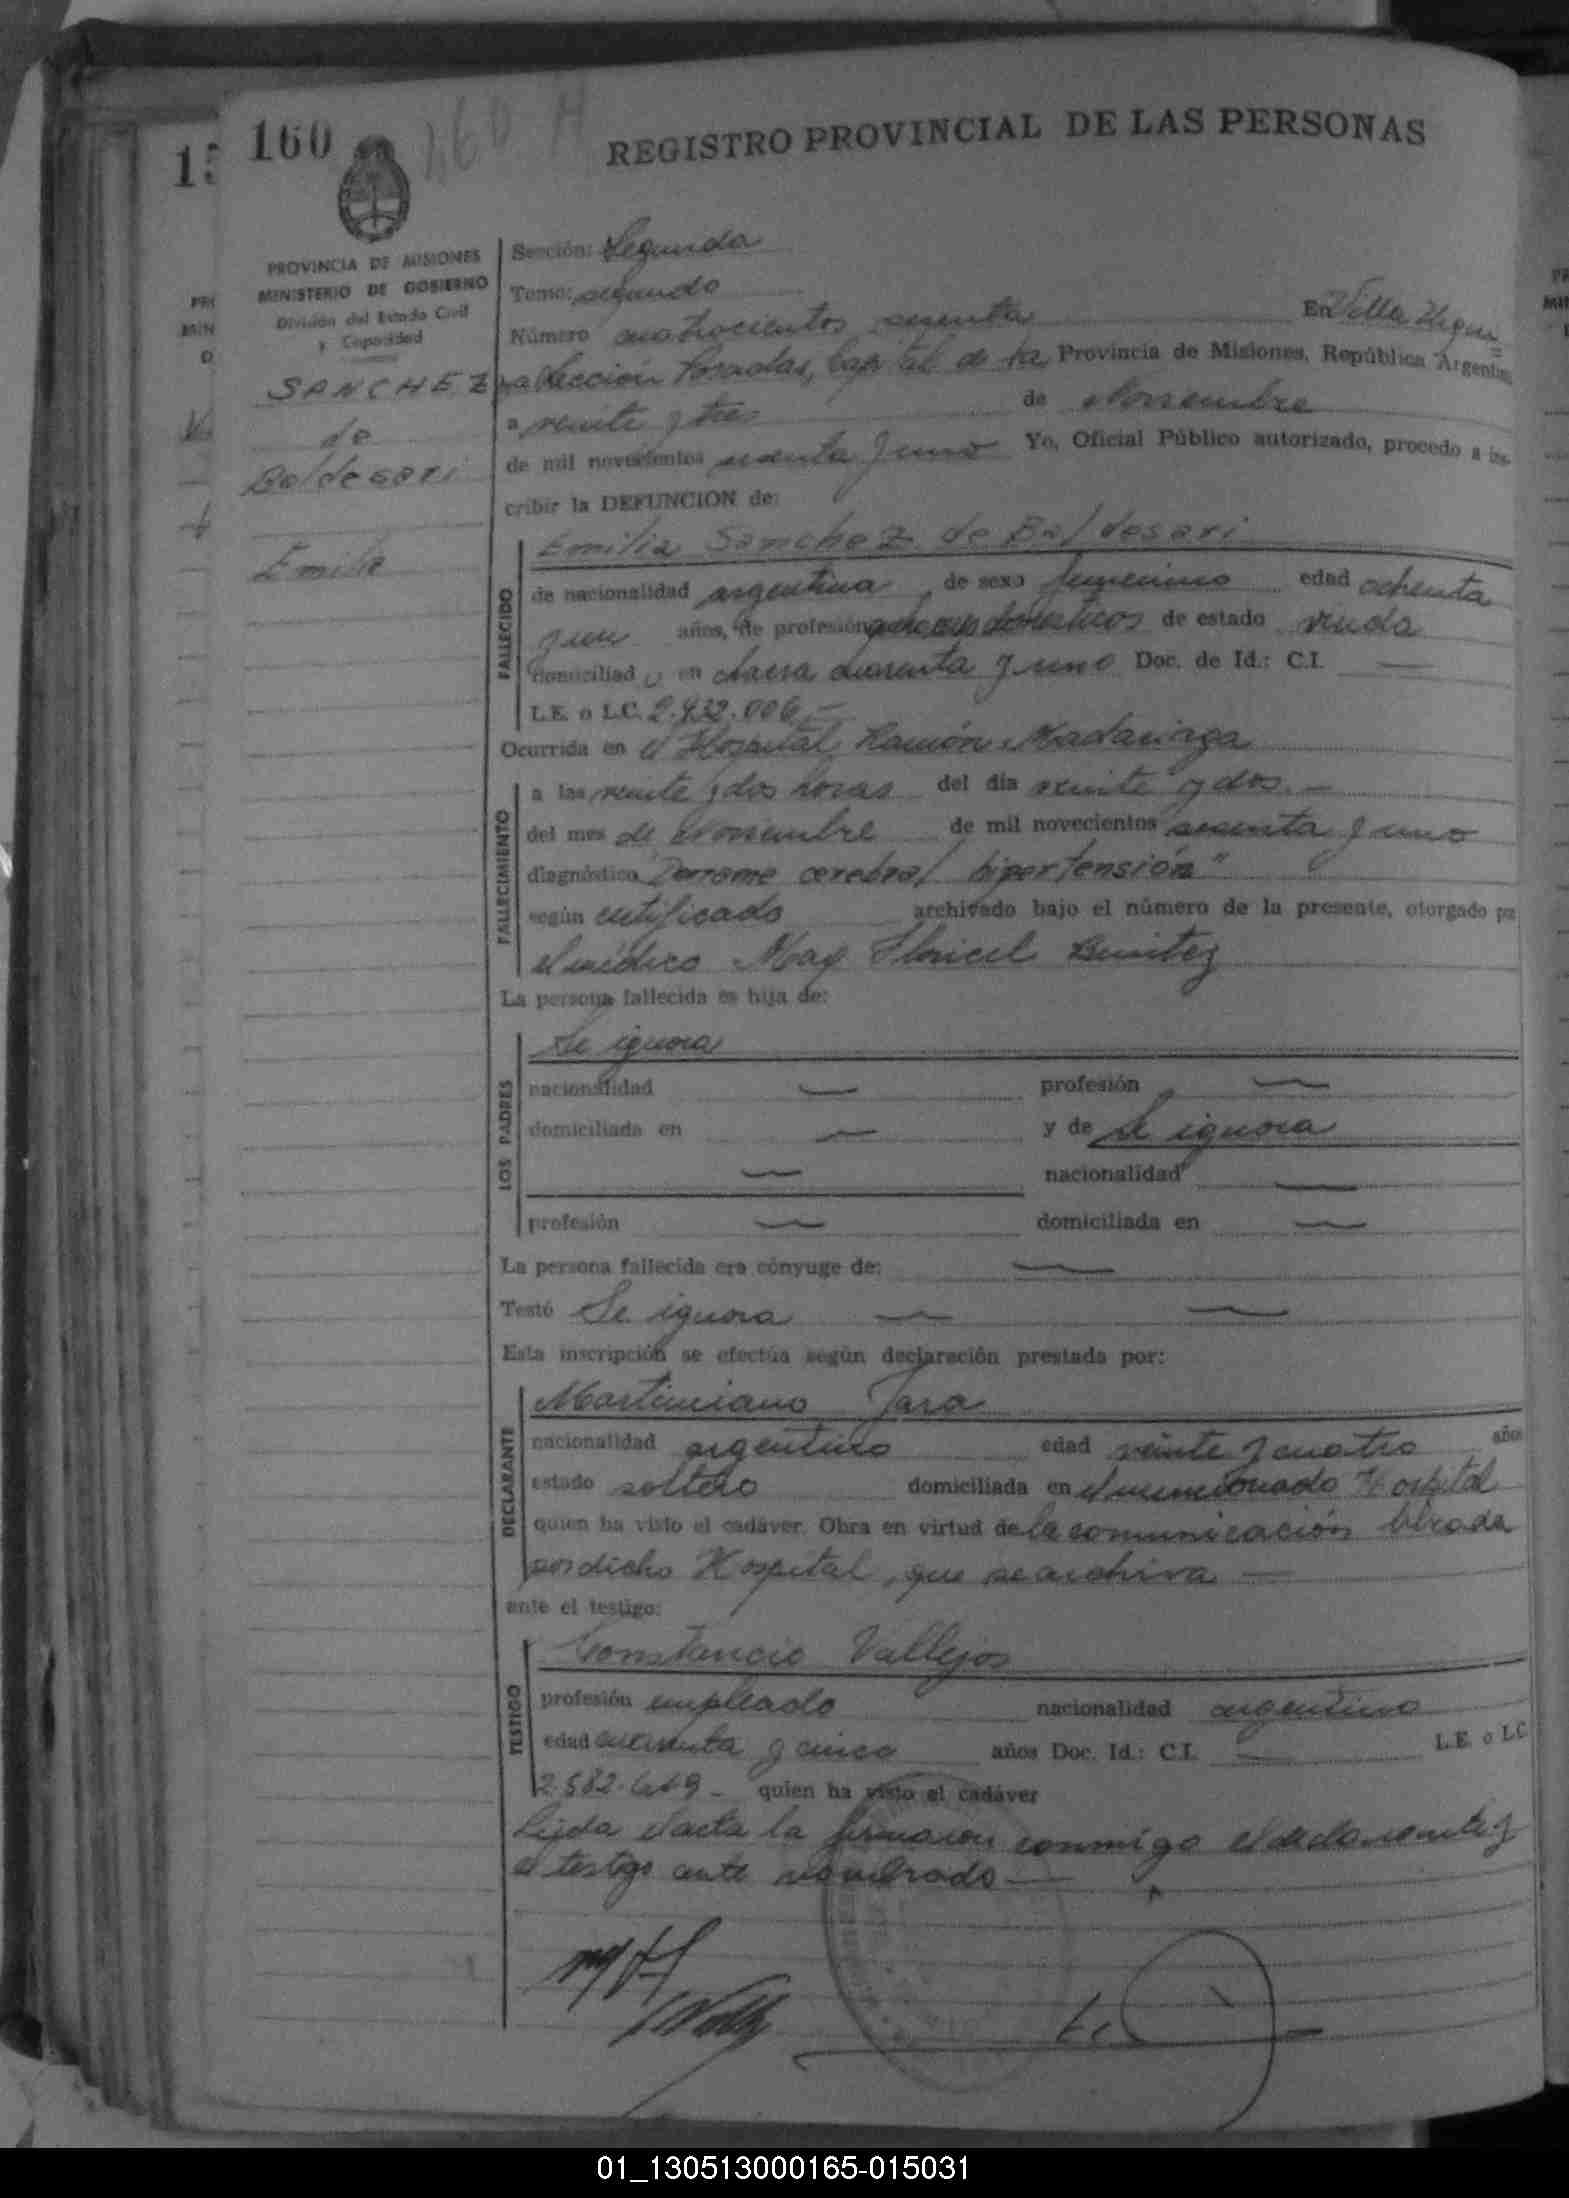 160
460 H
REGISTRO PROVINCIAL DE LAS PERSONAS
PROVINCIA DE MISIONES
MINISTERIO DE GOBIERNO
División del Estado Civil
y Capacidad
SANCHEZ
de
Baldesari
Emilia
Sección: Segunda
Tomo: segundo
Número cuatrocientos sesenta En Villa Urqui=
za Sección Posadas, Capital de la Provincia de Misiones, República Argentina
a veinte y tres de Noviembre
de mil novecientos sesenta y uno Yo, Oficial Público autorizado, procedo a ins-
cribir la DEFUNCION de:
Emilia Sanchez de Baldesari
FALLECIDO
de nacionalidad argentina de sexo femenino edad ochenta
y un años, de profesión quehaceres domésticos de estado viuda
domiciliad en chacra cuarenta y uno Doc. de Id.: C.I. —
L.E. o L.C. 2.932.006.—
Ocurrida en el Hospital Ramón Madariaga
FALLECIMIENTO
a las veinte y dos horas del día veinte y dos.—
del mes de Noviembre de mil novecientos sesenta y uno
diagnóstico "Derrame cerebral hipertensión"
según certificado archivado bajo el número de la presente, otorgado por
el médico Benitez
La persona fallecida es hija de:
LOS PADRES
Se ignora
nacionalidad — profesión —
domiciliada en — y de Se ignora
— nacionalidad —
profesión — domiciliada en —
La persona fallecida era cónyuge de: —
Testó Se ignora — —
Esta inscripción se efectúa según declaración prestada por:
DECLARANTE
Martiniano Jara
nacionalidad argentino edad veinte y cuatro años
estado soltero domiciliada en el mencionado Hospital
quien ha visto el cadáver. Obra en virtud de la comunicación librada
por dicho Hospital, que se archiva —
ante el testigo:
TESTIGO
Constancio Vallejos
profesión empleado nacionalidad argentino
edad cuarenta y cinco años Doc. Id.: C.I. — L.E. o L.C.
2.582. quien ha visto el cadáver
Leída el acta la firmaron conmigo el declarante y
el testigo ante nombrado —
01_130513000165-015031